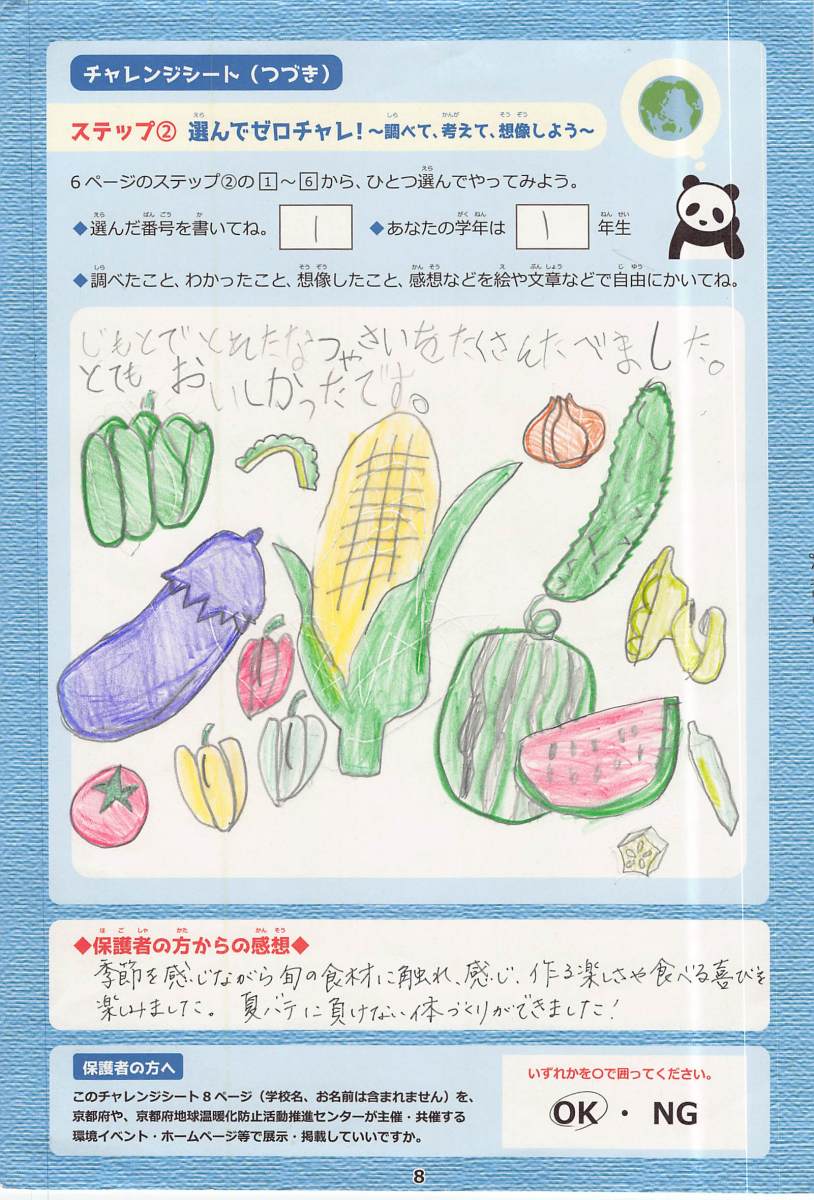 チャレンジシート（つづき）
ステップ② 選んでゼロチャレ！～調べて、考えて、想像しよう～
6ページのステップ②の1～6から、ひとつ選んでやってみよう。
◆選んだ番号を書いてね。 1 ◆あなたの学年は 1 年生
◆調べたこと、わかったこと、想像したこと、感想などを絵や文章などで自由にかいてね。
じもとでとれたなつやさいをたくさんたべました。
とても おいしかったです。
◆保護者の方からの感想◆
季節を感じながら旬の食材に触れ、感じ、作る楽しさや食べる喜びを
楽しみました。夏バテに負けない体づくりができました！
保護者の方へ
このチャレンジシート8ページ（学校名、お名前は含まれません）を、
京都府や、京都府地球温暖化防止活動推進センターが主催・共催する
環境イベント・ホームページ等で展示・掲載していいですか。
いずれかを○で囲ってください。
OK ・ NG
8